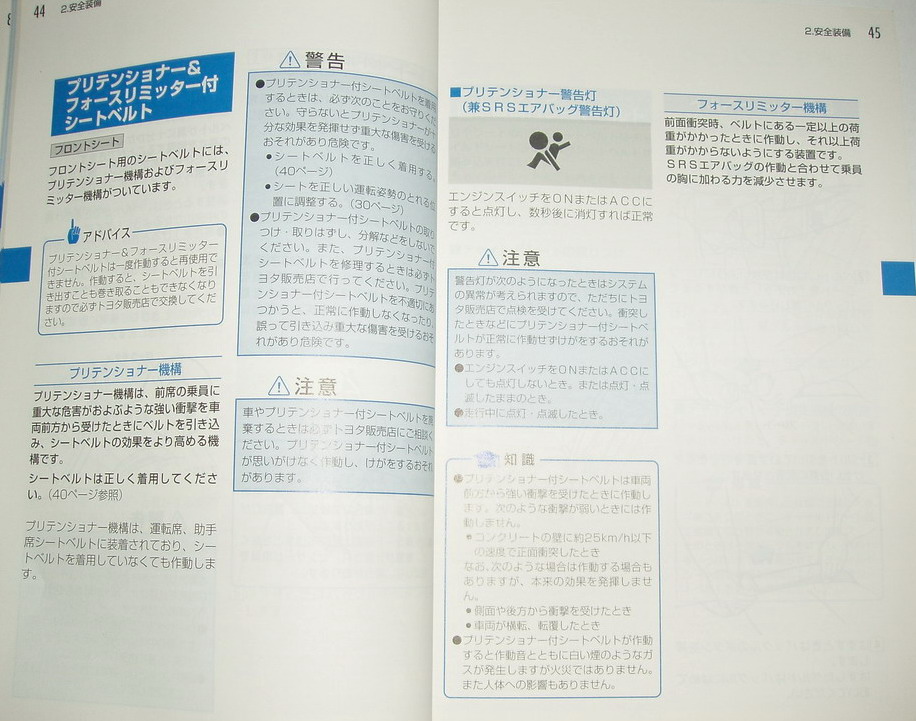 44
2.安全装備
プリテンショナー&
フォースリミッター付
シートベルト
フロントシート
フロントシート用のシートベルトには、
プリテンショナー機構およびフォースリ
ミッター機構がついています。
アドバイス
プリテンショナー&フォースリミッター
付シートベルトは一度作動すると再使用で
きません。作動すると、シートベルトを引
き出すことも巻き取ることもできなくなり
ますので必ずトヨタ販売店で交換してくだ
さい。
プリテンショナー機構
プリテンショナー機構は、前席の乗員に
重大な危害がおよぶような強い衝撃を車
両前方から受けたときにベルトを引き込
み、シートベルトの効果をより高める機
構です。
シートベルトは正しく着用してくださ
い。(40ページ参照)
プリテンショナー機構は、運転席、助手
席シートベルトに装着されており、シー
トベルトを着用していなくても作動しま
す。
警告
●プリテンショナー付シートベルトを着用
するときは、必ず次のことをお守りくだ
さい。守らないとプリテンショナーが十
分な効果を発揮せず重大な傷害を受ける
おそれがあり危険です。
●シートベルトを正しく着用する。
(40ページ)
●シートを正しい運転姿勢のとれる位
置に調整する。(30ページ)
●プリテンショナー付シートベルトの取り
つけ・取りはずし、分解などをしないで
ください。また、プリテンショナー付
シートベルトを修理するときは必ずト
ヨタ販売店で行ってください。プリテ
ンショナー付シートベルトを不適切に
つかうと、正常に作動しなくなったり、
誤って引き込み重大な傷害を受けるおそ
れがあり危険です。
注意
車やプリテンショナー付シートベルトを廃
棄するときは必ずトヨタ販売店にご相談く
ださい。プリテンショナー付シートベルト
が思いがけなく作動し、けがをするおそれ
があります。
2.安全装備
45
■プリテンショナー警告灯
(兼SRSエアバッグ警告灯)
エンジンスイッチをONまたはACCに
すると点灯し、数秒後に消灯すれば正常
です。
注意
警告灯が次のようになったときはシステム
の異常が考えられますので、ただちにトヨ
タ販売店で点検を受けてください。衝突し
たときなどにプリテンショナー付シートベ
ルトが正常に作動せずけがをするおそれが
あります。
●エンジンスイッチをONまたはACCに
しても点灯しないとき。または点灯・点
滅したままのとき。
●走行中に点灯・点滅したとき。
知識
●プリテンショナー付シートベルトは車両
前方から強い衝撃を受けたときに作動し
ます。次のような衝撃が弱いときには作
動しません。
●コンクリートの壁に約25km/h以下
の速度で正面衝突したとき
なお、次のような場合は作動する場合も
ありますが、本来の効果を発揮しませ
ん。
●側面や後方から衝撃を受けたとき
●車両が横転、転覆したとき
●プリテンショナー付シートベルトが作動
すると作動音とともに白い煙のようなガ
スが発生しますが火災ではありません。
また人体への影響もありません。
フォースリミッター機構
前面衝突時、ベルトにある一定以上の荷
重がかかったときに作動し、それ以上荷
重がかからないようにする装置です。
SRSエアバッグの作動と合わせて乗員
の胸に加わる力を減少させます。